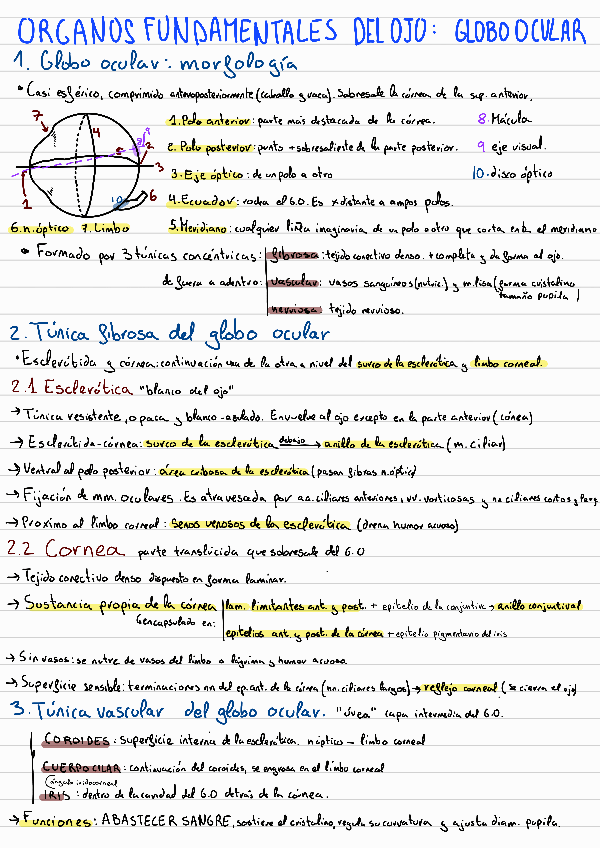 ORGANOS FUNDAMENTALES DEL OJO: GLOBO OCULAR
1. Globo ocular: morfología
• Casi esférico, comprimido anteroposteriormente (caballo y vaca). Sobresale la córnea de la sup. anterior.
7
4
8
9
2
3
1
10
6
1. Polo anterior: parte mais destacada de la córnea.
8. Mácula
2. Polo posterior: punto + sobresaliente de la parte posterior.
9 eje visual.
3. Eje óptico: de un polo a otro
10. disco óptico
4. Ecuador: rodea el G.O. Es xdistante a ampos polos.
6. n. óptico 7. Limbo
5. Meridiano: cualquier línea imaginaria de un polo a otro que corta en el meridiano
• Formado por 3 túnicas concéntricas:
fibrosa: tejido conectivo denso. + completa y da forma al ojo.
de fuera a adentro:
vascular: vasos sanguíneos (nutric.) y m. lisa (forma cristalino
tamaño pupila)
nerviosa: tejido nervioso.
2. Túnica fibrosa del globo ocular
• Esclerótida y córnea: continuación una de la otra a nivel del surco de la esclerótica y limbo corneal.
2.1 Esclerótica "blanco del ojo"
→ Túnica resistente, opaca y blanco-azulado. Envuelve al ojo excepto en la parte anterior (córnea)
→ Esclerótida-córnea: surco de la esclerótica debajo → anillo de la esclerótica (m. ciliar)
→ Ventral al polo posterior: área cribosa de la esclerótica (pasan fibras n. óptico)
→ Fijación de mm. oculares. Es atravesada por aa. ciliares anteriores, vv. vorticosas y nn ciliares cortos y larg.
→ Proximo al limbo corneal: senos venosos de la esclerótica (drena humor acuoso)
2.2 Cornea parte translúcida que sobresale del G.O
→ Tejido conectivo denso dispuesto en forma laminar.
→ Sustancia propia de la córnea
lam. limitantes ant. y post. + epitelio de la conjuntiva → anillo conjuntival
encapsulado en:
epitelios ant. y post. de la córnea + epitelio pigmentario del iris
→ Sin vasos: se nutre de vasos del limbo a lágrima y humor acuoso.
→ Superficie sensible: terminaciones nn del ep. ant. de la córnea (nn. ciliares largos) → reflejo corneal (se cierra el ojo)
3. Túnica vascular del globo ocular. "úvea" capa intermedia del G.O.
COROIDES: superficie interna de la esclerótica. n óptico – limbo corneal
CUERPO CILAR: continuación del coroides, se engrosa en el limbo corneal
(ángulo iridocorneal
IRIS: dentro de la cavidad del G.O detrás de la córnea.
→ Funciones: ABASTECER SANGRE, sostiene el cristalino, regula su curvatura y ajusta diam. pupila.